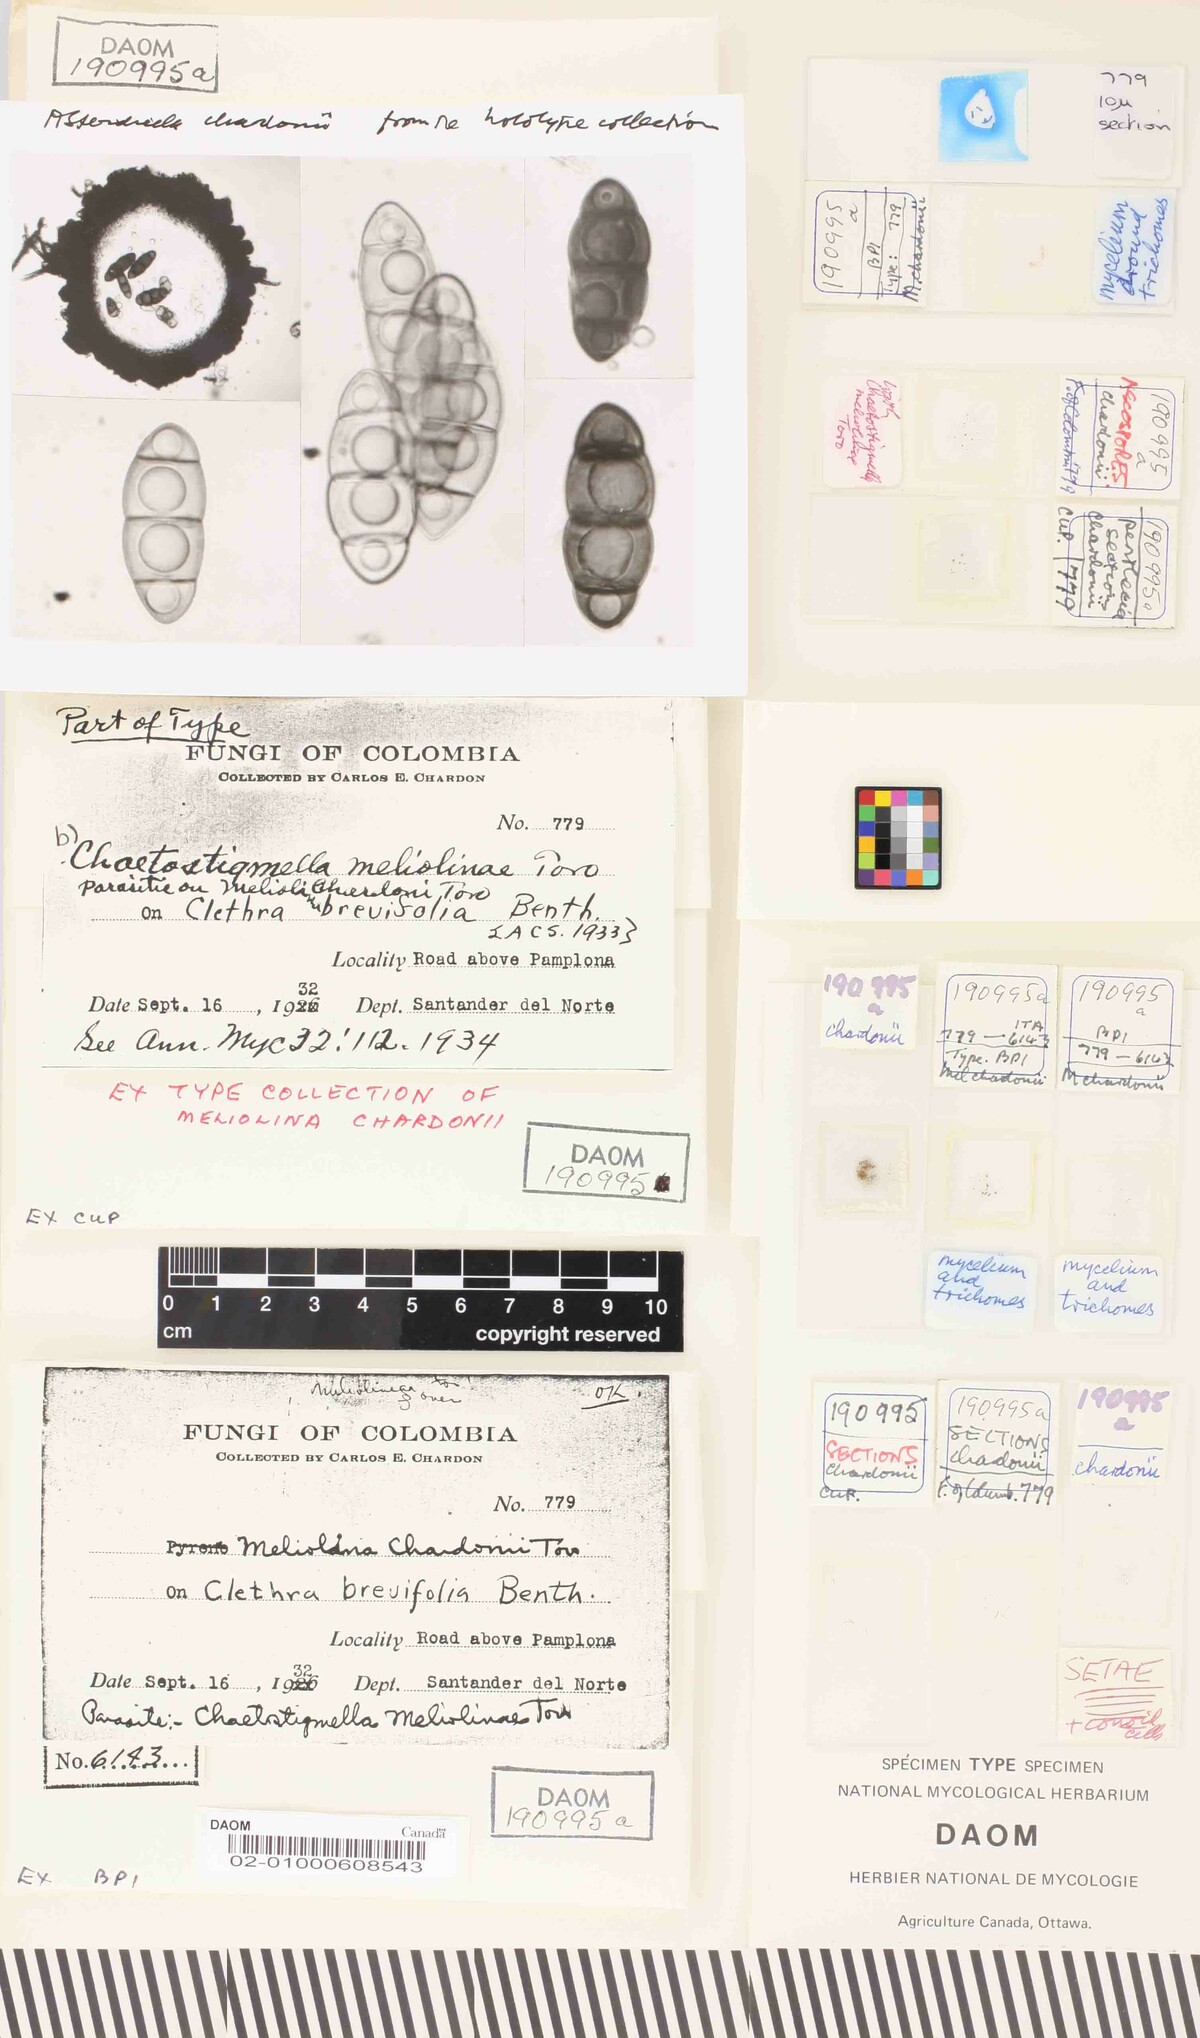 DAOM
190995a
chardonii from the holotype collection
779
10µ
section
190995
a
BPI
Type: 779
M. chardonii
mycelium
around
trichomes
Chaetostigmella
meliolinae
Toro
190995
a
ASCOSPORES
chardonii
F. of Colombia 779
190995a
perithecia
sections
chardonii
CUP. 779
Part of Type
FUNGI OF COLOMBIA
COLLECTED BY CARLOS E. CHARDON
No. 779
b) Chaetostigmella meliolinae Toro
Parasitic on Meliolina Chardoni Toro
on Clethra brevifolia Benth.
{ACS. 1933}
Locality Road above Pamplona
32
Date Sept. 16, 1926 Dept. Santander del Norte
See Ann. Myc 32: 112. 1934
EX TYPE COLLECTION OF
MELIOLINA CHARDONII
DAOM
190995
EX CUP
0 1 2 3 4 5 6 7 8 9 10
cm copyright reserved
190995
a
chardonii
190995a
ITA
779 — 6143
Type. BPI
Mel chardonii
190995
a
BPI
779 — 6143
M chardonii
mycelium
and
trichomes
mycelium
and
trichomes
over
OK.
FUNGI OF COLOMBIA
COLLECTED BY CARLOS E. CHARDON
No. 779
Meliolina Chardonii Toro
on Clethra brevifolia Benth.
Locality Road above Pamplona
32
Date Sept. 16, 1926 Dept. Santander del Norte
Parasite:- Chaetostigmella Meliolinae Toro
No. 6143...
DAOM
190995a
DAOM
Canada
02-01000608543
EX BPI
190995
SECTIONS
chardonii
CUP.
190995a
SECTIONS
chardonii
F. of Columb. 779
190995
a
chardonii
SETAE
+ conoid
cells
SPÉCIMEN TYPE SPECIMEN
NATIONAL MYCOLOGICAL HERBARIUM
DAOM
HERBIER NATIONAL DE MYCOLOGIE
Agriculture Canada, Ottawa.